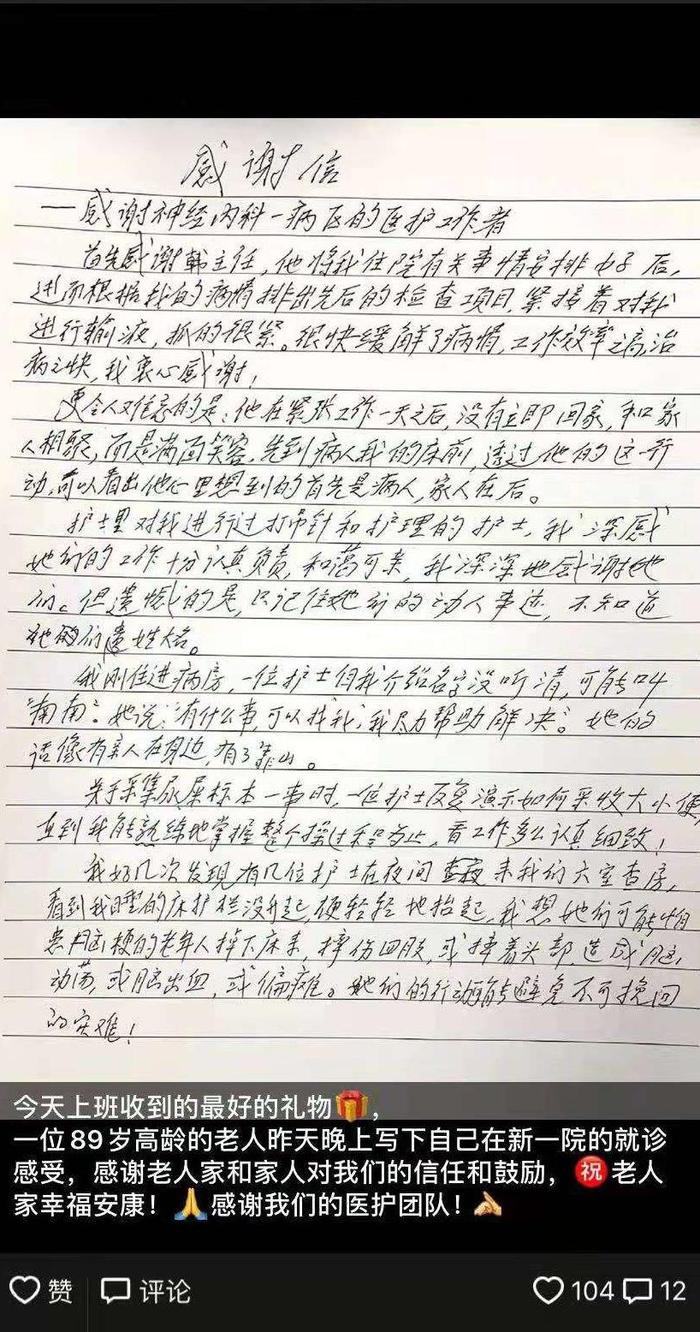 感谢信
—感谢神经内科一病区的医护工作者
首先感谢韩主任，他将我住院有关事情安排好后，
进而根据我的病情排出先后的检查项目，紧接着对我
进行输液，抓的很紧。很快缓解了病情，工作效率之高，治
病之快，我衷心感谢！
更令人难忘的是：他在紧张工作一天之后，没有立即回家，和家
人相聚，而是满面笑容，先到病人我的床前，透过他的这一行
动，可以看出他心里想到的首先是病人，家人在后。
护士里对我进行过打吊针和护理的护士，我深感
她们的工作十分认真负责，和蔼可亲，我深深地感谢她
们。但遗憾的是，只记住她们的动人事迹，不知道
她的们姓名。
我刚住进病房，一位护士但我介绍名字没听清，可能叫
“南南”。她说：“有什么事，可以找我，我尽力帮助解决”。她的
话像有亲人在身边，有了靠山。
关于采集尿屎标本一事时，一位护士反复演示如何采收大小便，
直到我能熟练地掌握整个操过程为止，看工作多么认真细致！
我好几次发现有几位护士在夜间来我们六室查房，
看到我睡的床护栏没升起，便轻轻地抬起，我想她们可能怕
患脑梗的老年人掉下床来，摔伤四肢，或摔着头部造成脑
动荡，或脑出血，或偏瘫。她们的行动能避免不可挽回
的灾难！
今天上班收到的最好的礼物🎁，
一位89岁高龄的老人昨天晚上写下自己在新一院的就诊
感受，感谢老人家和家人对我们的信任和鼓励，㊗️老人
家幸福安康！🙏感谢我们的医护团队！💪
赞 评论 104 12